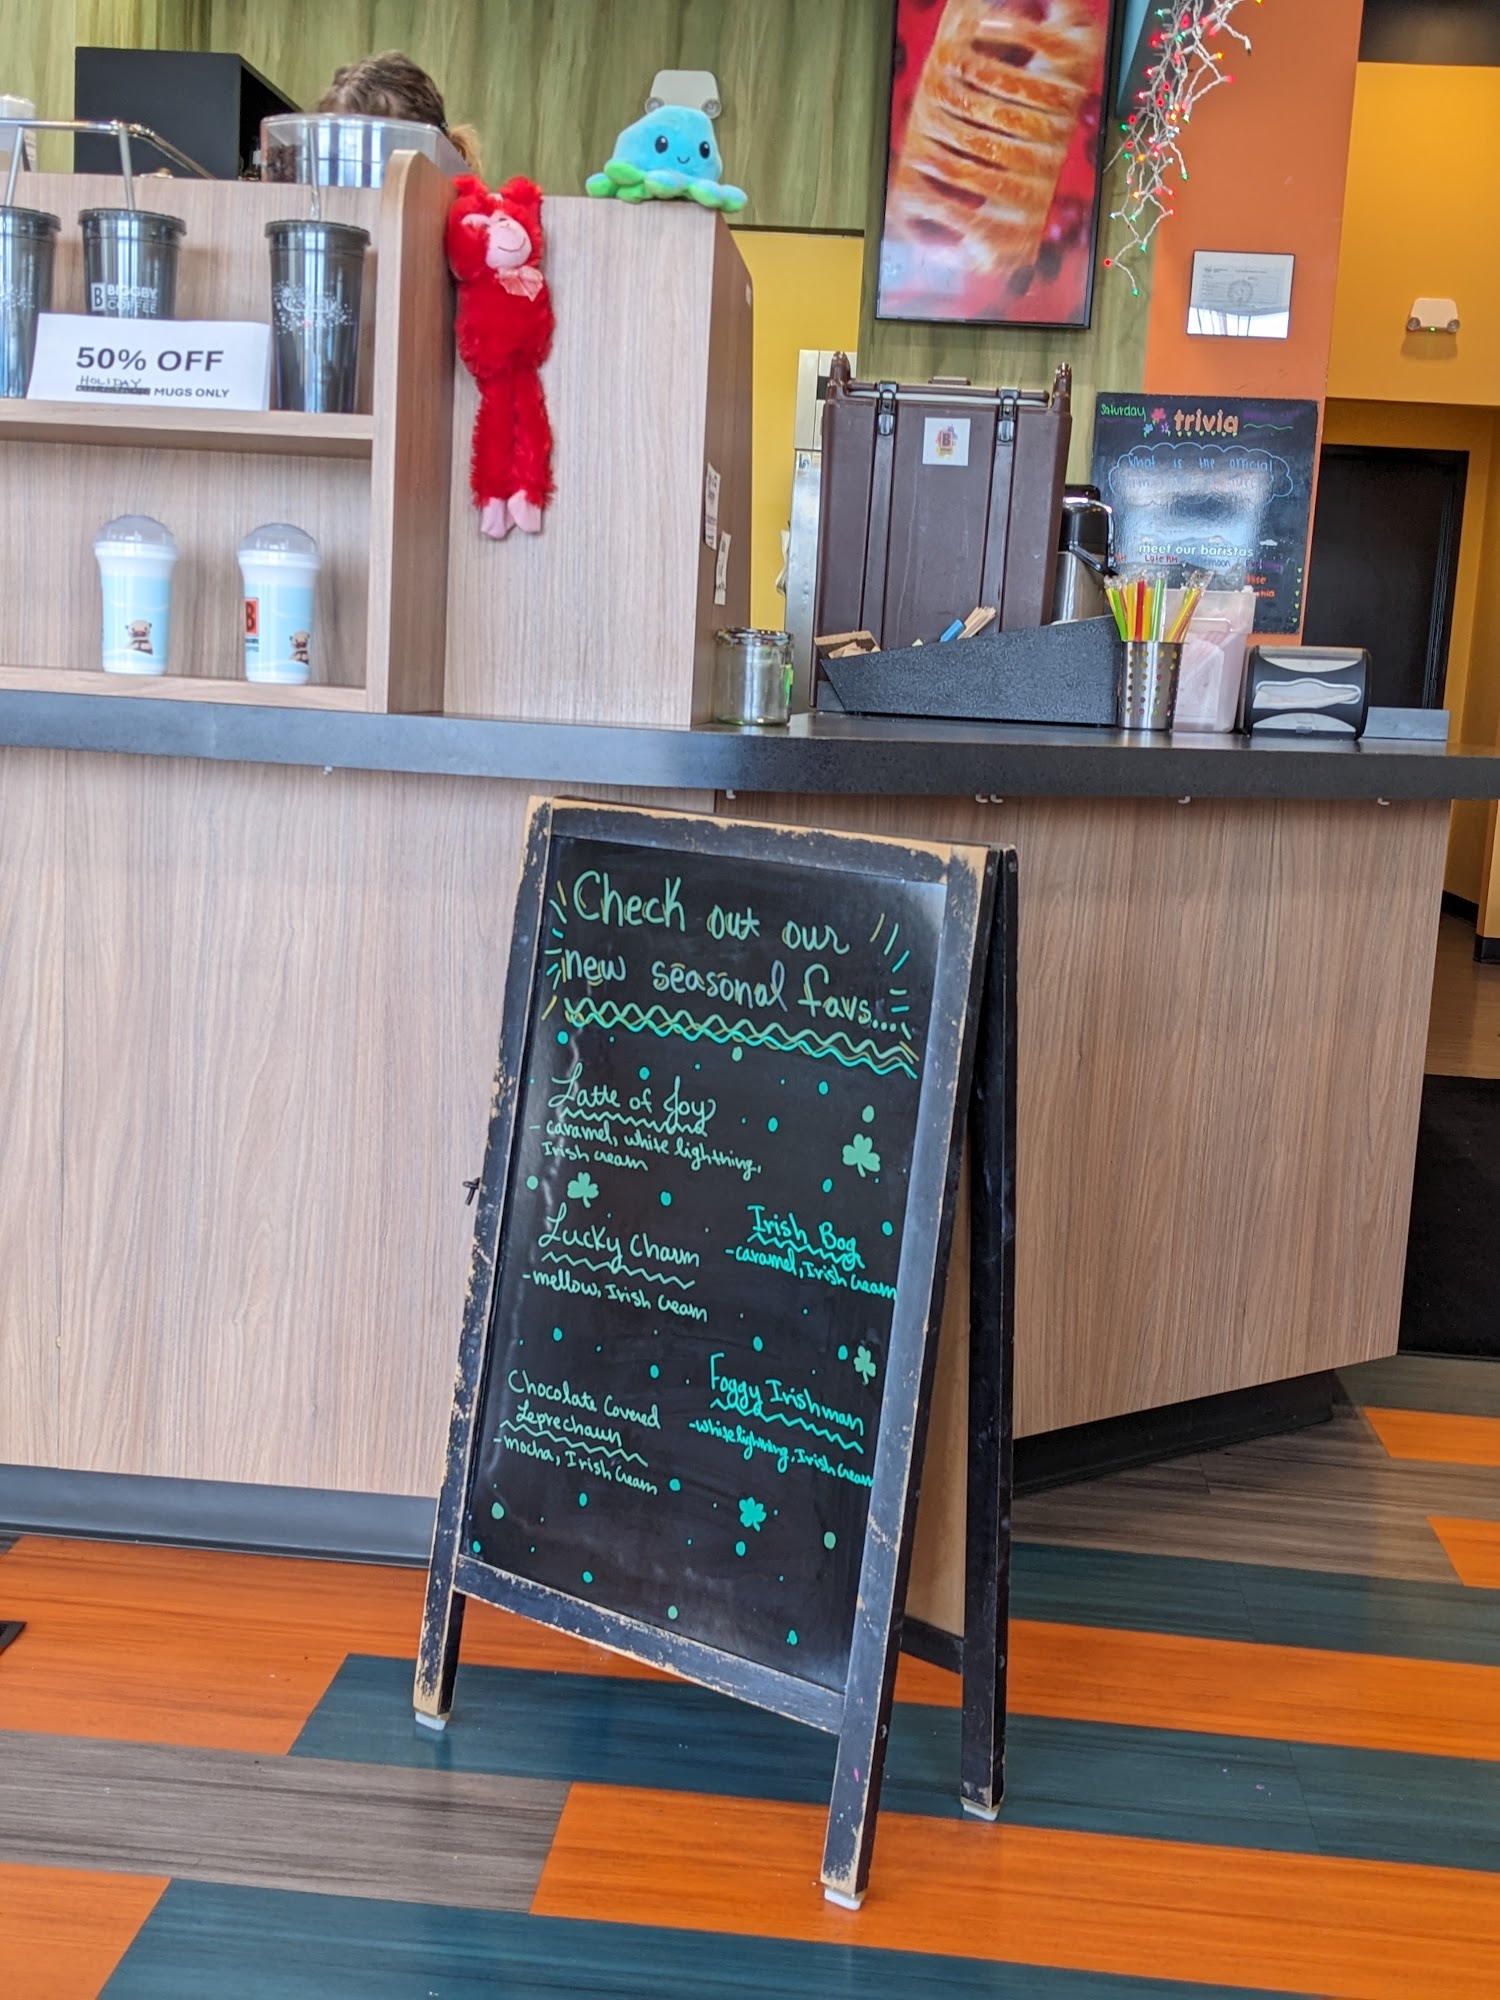 B BIGGBY
COFFEE
50% OFF
HOLIDAY
MUGS ONLY
B
B
Saturday
trivia
What is the official
meet our baristas
Check out our
new seasonal favs...
Latte of Joy
- caramel, white lighthing,
Irish cream
Lucky Charm
- mellow, Irish Cream
Irish Bog
- caramel, Irish Cream
Chocolate Covered
Leprechaun
- mocha, Irish Cream
Foggy Irishman
- white lightning, Irish Cream